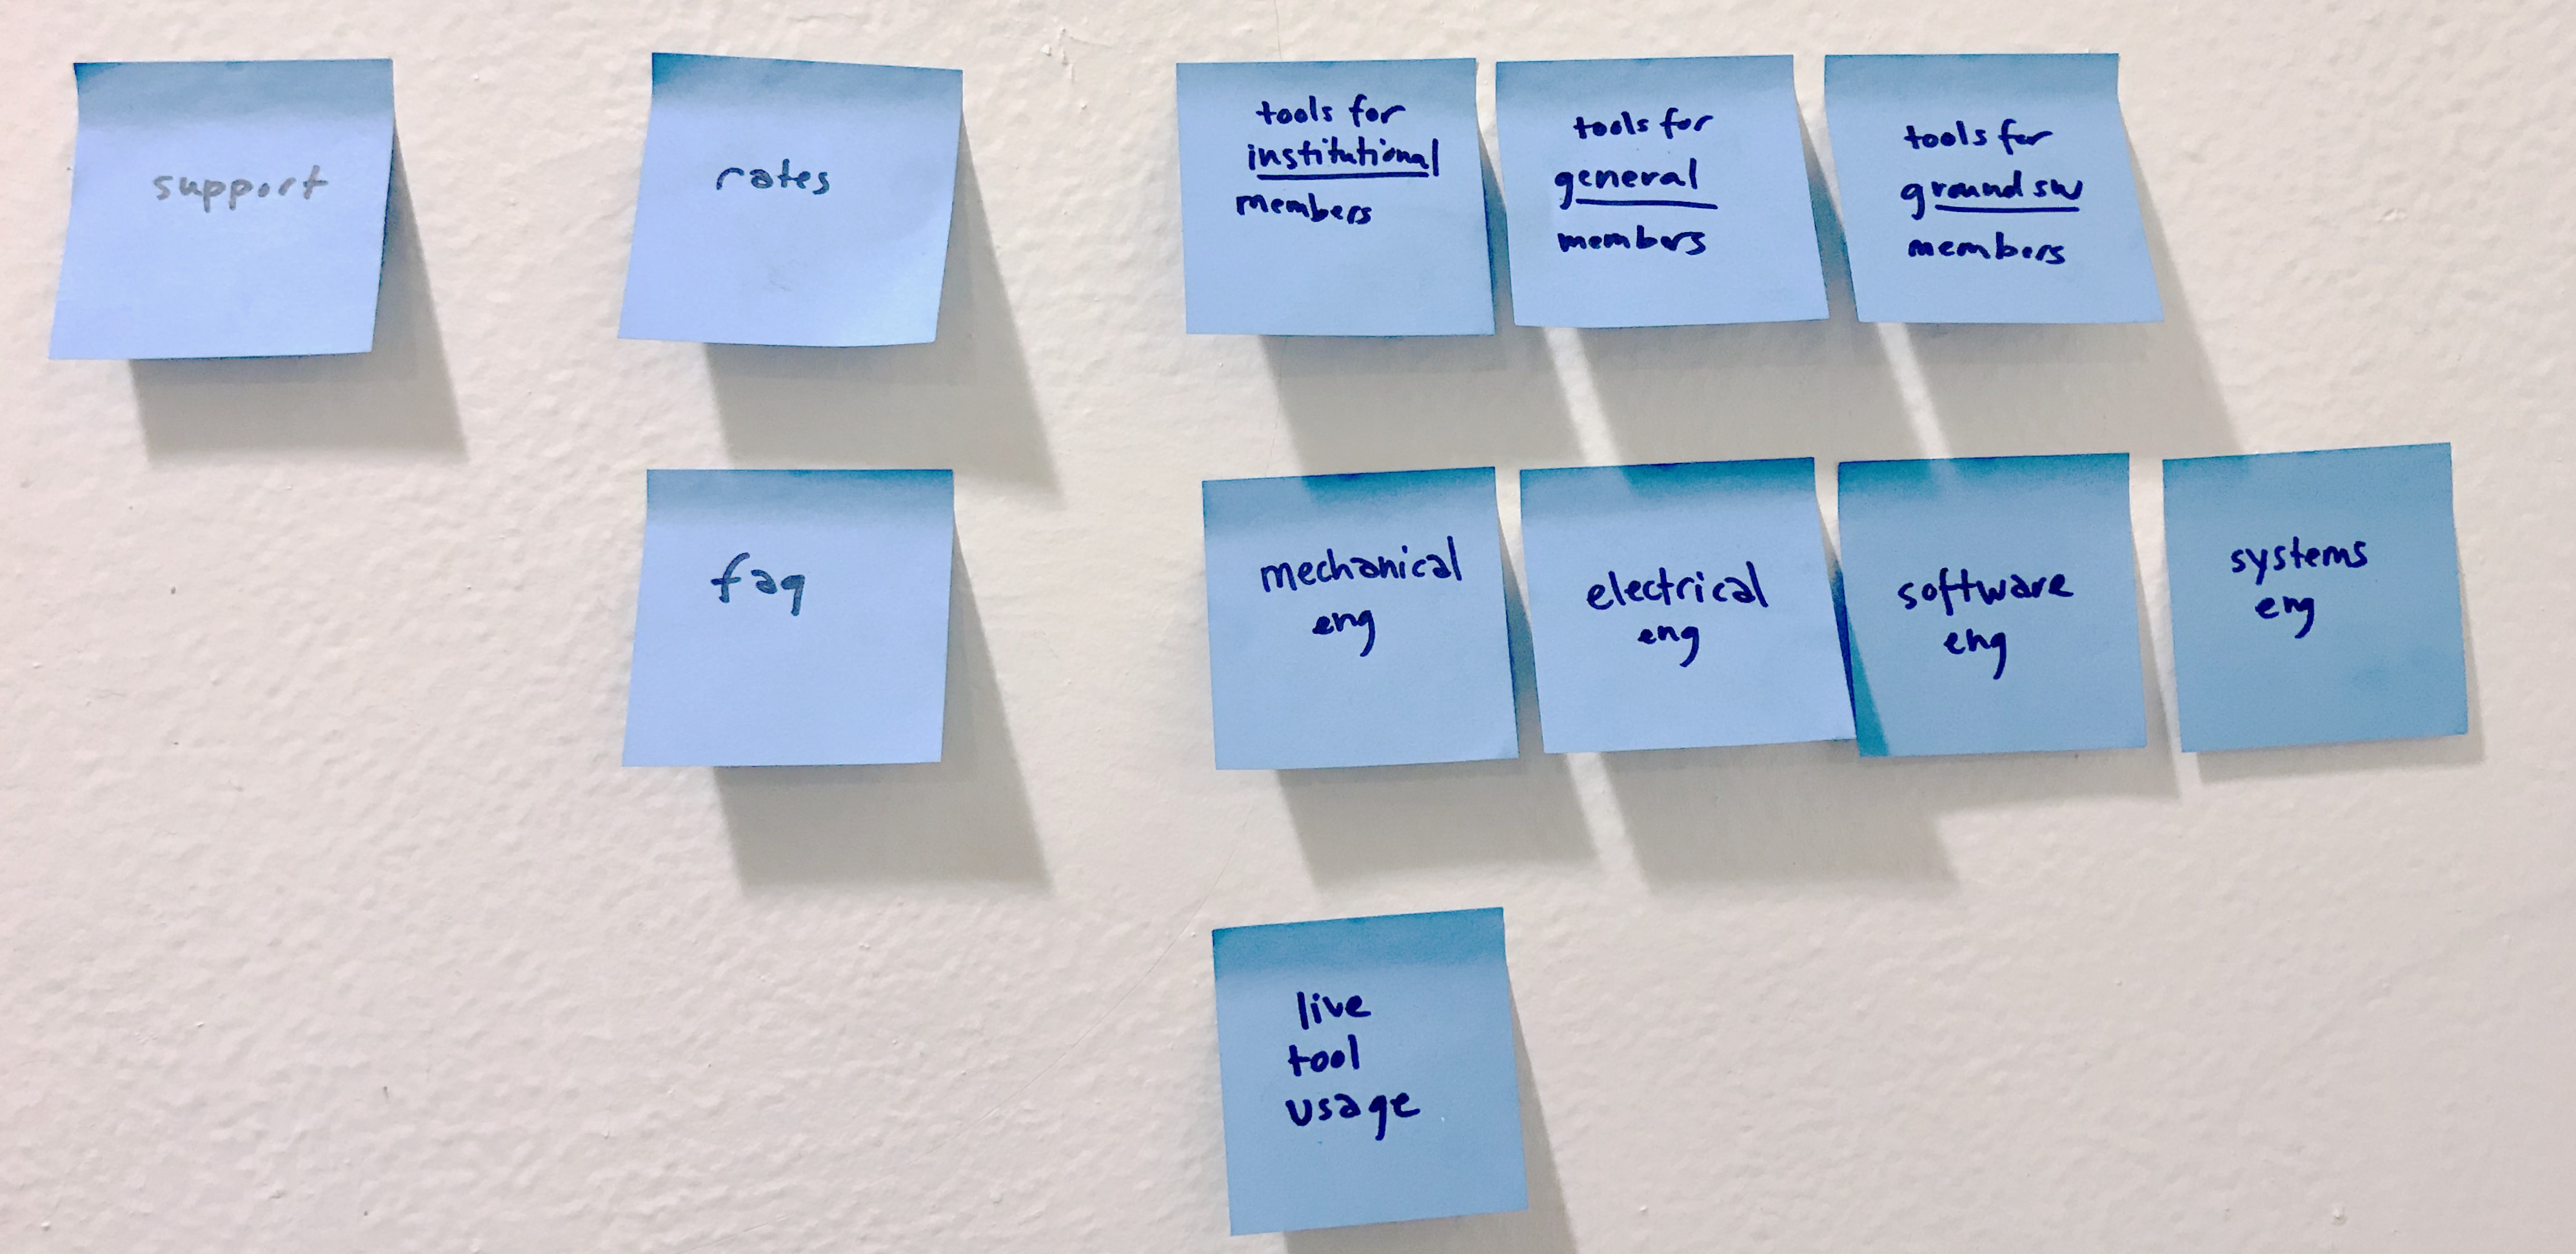 support
rates
tools for
institutional
members
tools for
general
members
tools for
ground sw
members
faq
mechanical
eng
electrical
eng
software
eng
systems
eng
live
tool
usage